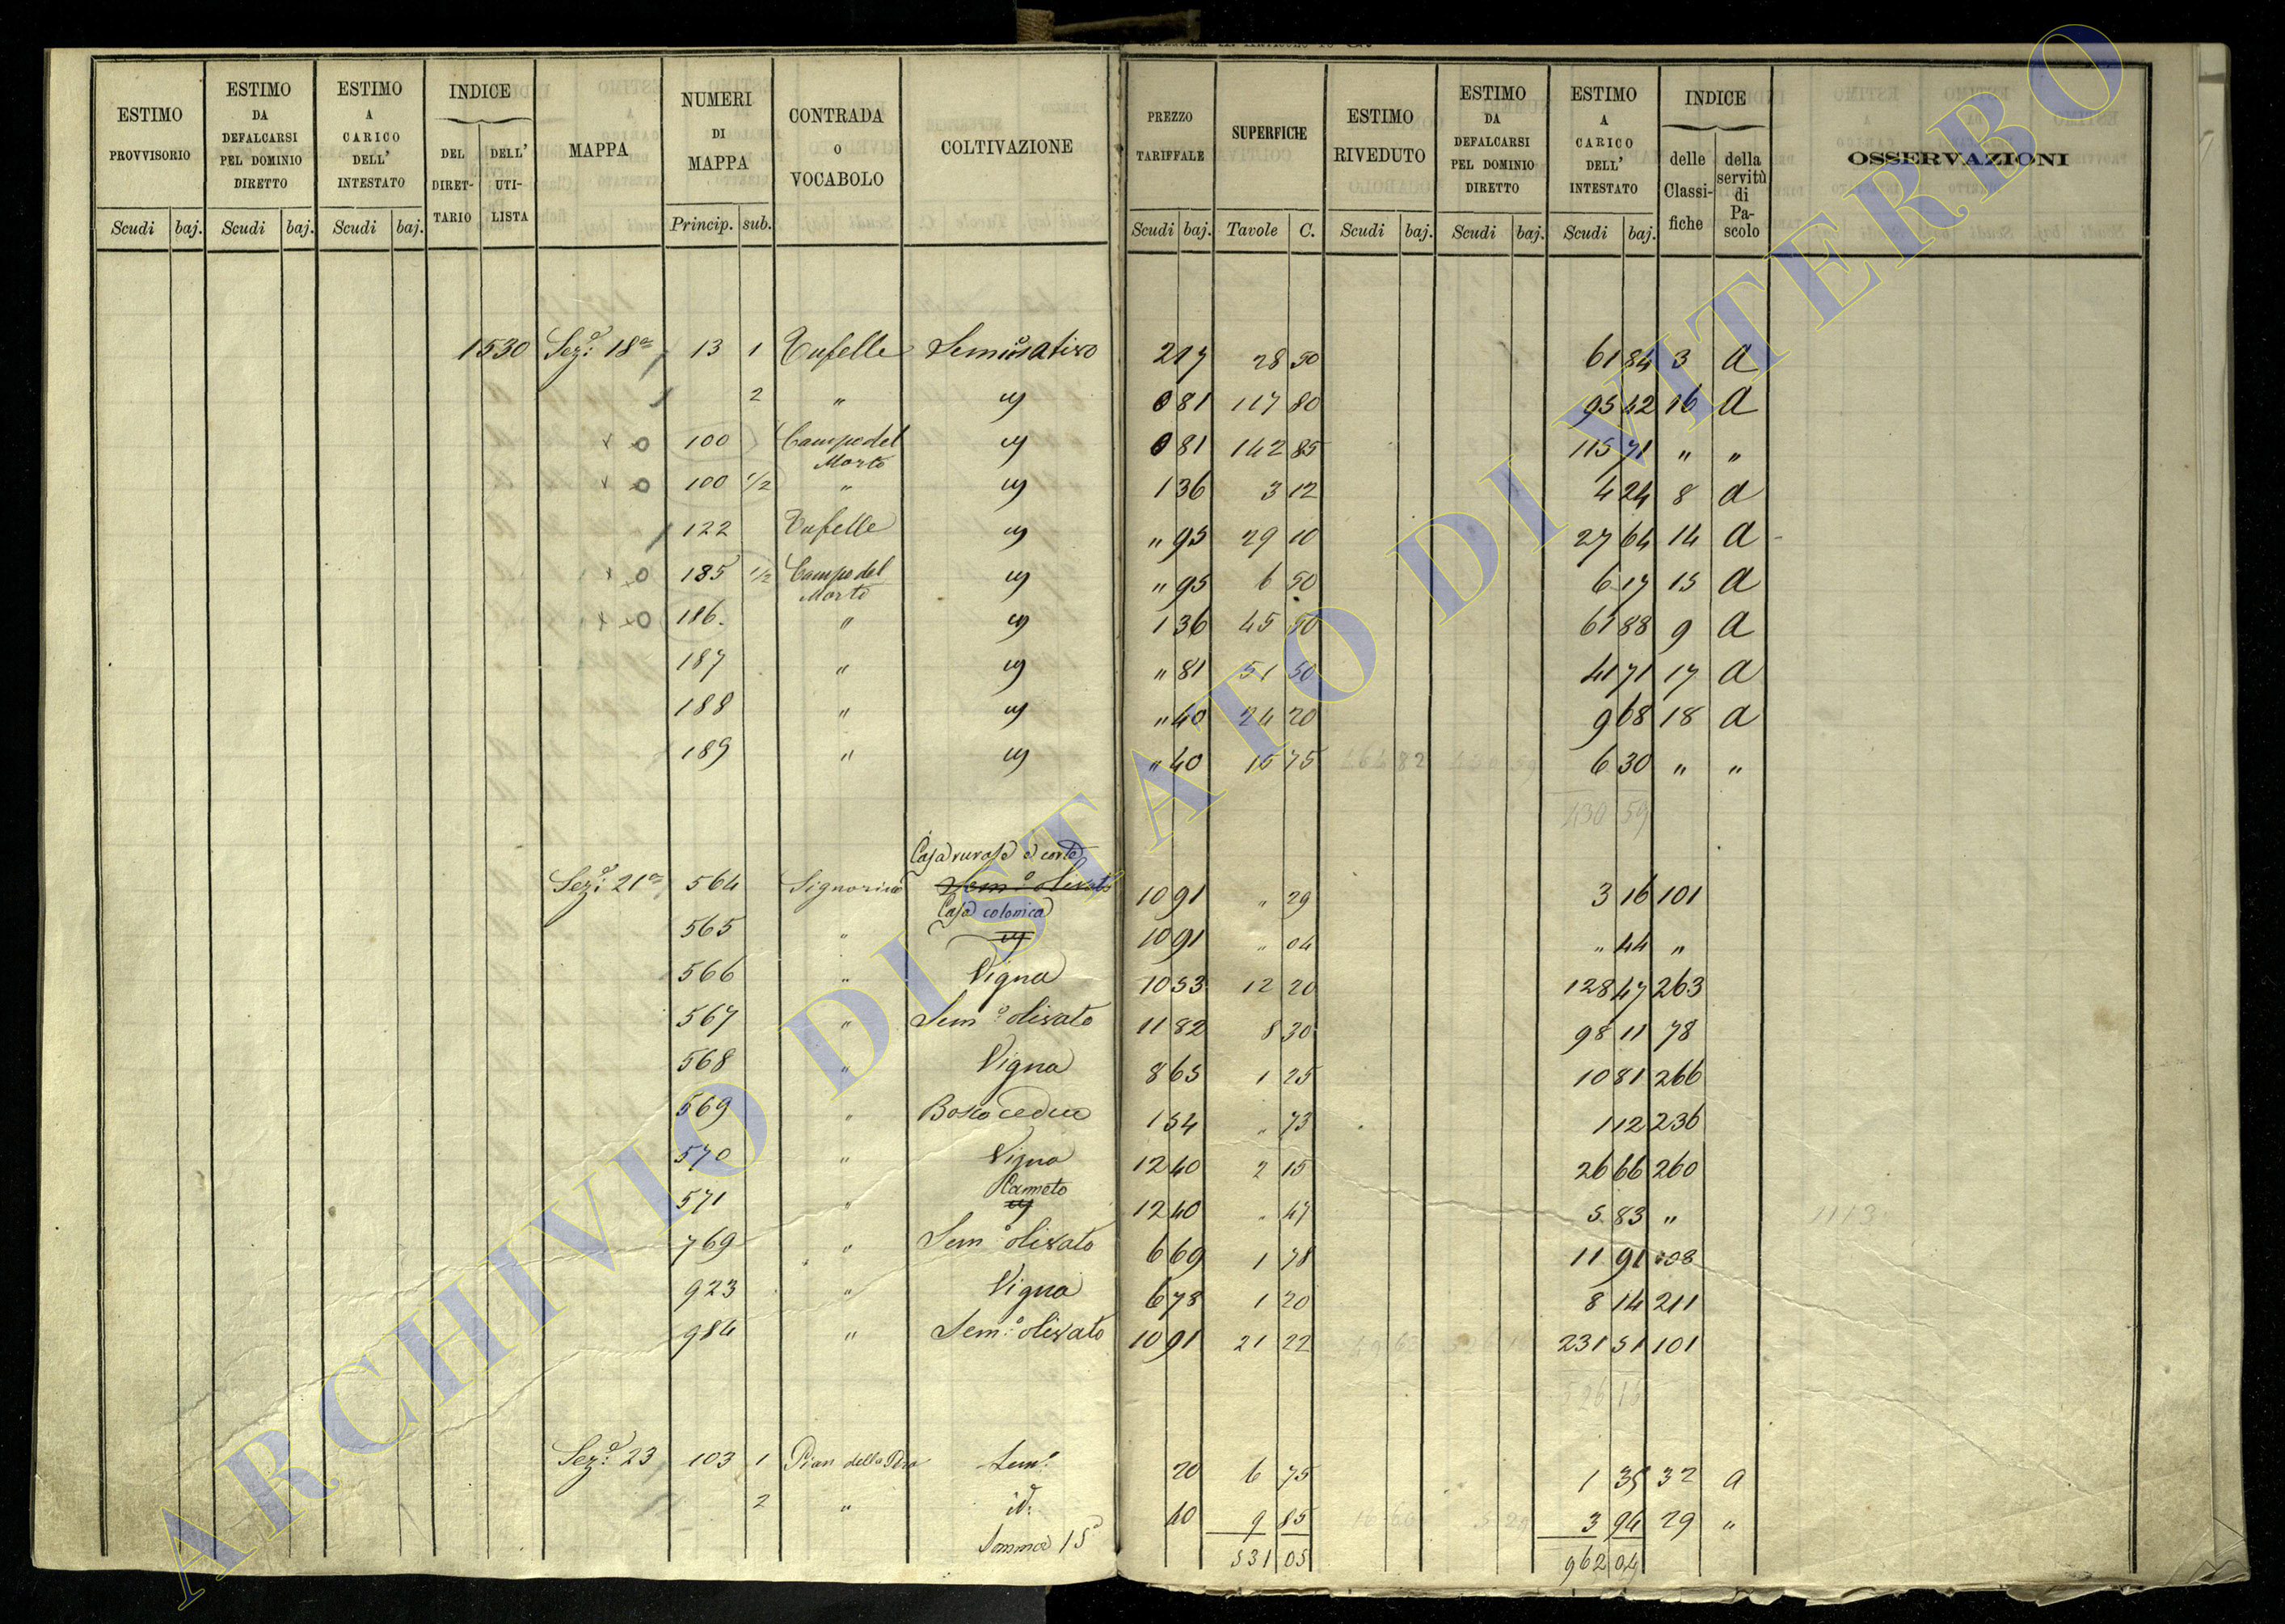 ESTIMO PROVVISORIO | ESTIMO DA DEFALCARSI PEL DOMINIO DIRETTO | ESTIMO A CARICO DELL' INTESTATO | INDICE DEL DIRETTARIO | DELL' UTILISTA | MAPPA | NUMERI DI MAPPA | CONTRADA O VOCABOLO | COLTIVAZIONE | PREZZO TARIFFALE | SUPERFICIE | ESTIMO RIVEDUTO | ESTIMO DA DEFALCARSI PEL DOMINIO DIRETTO | ESTIMO A CARICO DELL' INTESTATO | INDICE delle Classifiche | della servitù di Pascolo | OSSERVAZIONI
Scudi | baj. | Scudi | baj. | Scudi | baj. | Princip. | sub. | Scudi | baj. | Tavole | C. | Scudi | baj. | Scudi | baj. | Scudi | baj.
1530 Sez: 18a 13 1 Tufelle Seminativo 2 17 28 50 61 84 3 a
2 " id 0 81 117 80 95 42 16 a
100 Campo del Morto id 0 81 142 85 115 71 " "
100 1/2 " id 1 36 3 12 4 24 8 a
122 Tufelle id " 95 29 10 27 64 14 a
185 1/2 Campo del Morto id " 95 6 50 6 17 15 a
186. " id 1 36 45 50 61 88 9 a
187 " id " 81 51 50 41 71 17 a
188 " id " 40 24 20 9 68 18 a
189 " id " 40 15 75 464 82 430 59 6 30 " "
430 59
Casa rurale e corte
Sez: 21a 564 Signorino Sem:o olivato 10 91 " 29 3 16 101
Casa colonica
565 " id 10 91 " 04 " 44 "
566 " Vigna 10 53 12 20 128 47 263
567 " Sem:o olivato 11 82 8 30 98 11 78
568 " Vigna 8 65 1 25 10 81 266
569 " Bosco ceduo 1 54 " 73 1 12 236
570 " Vigna 12 40 2 15 26 66 260
Canneto
571 " id 12 40 " 47 5 83 "
769 " Sem:o olivato 6 69 1 78 11 91 108
923 " Vigna 6 78 1 20 8 14 211
984 " Sem:o olivato 10 91 21 22 231 51 101
526 15
Sez: 23 103 1 Pian della Sem: 20 6 75 1 35 32 a
2 " id: 40 9 85 3 94 29 "
Somma 531 05 962 04
ARCHIVIO DI STATO DI VITERBO